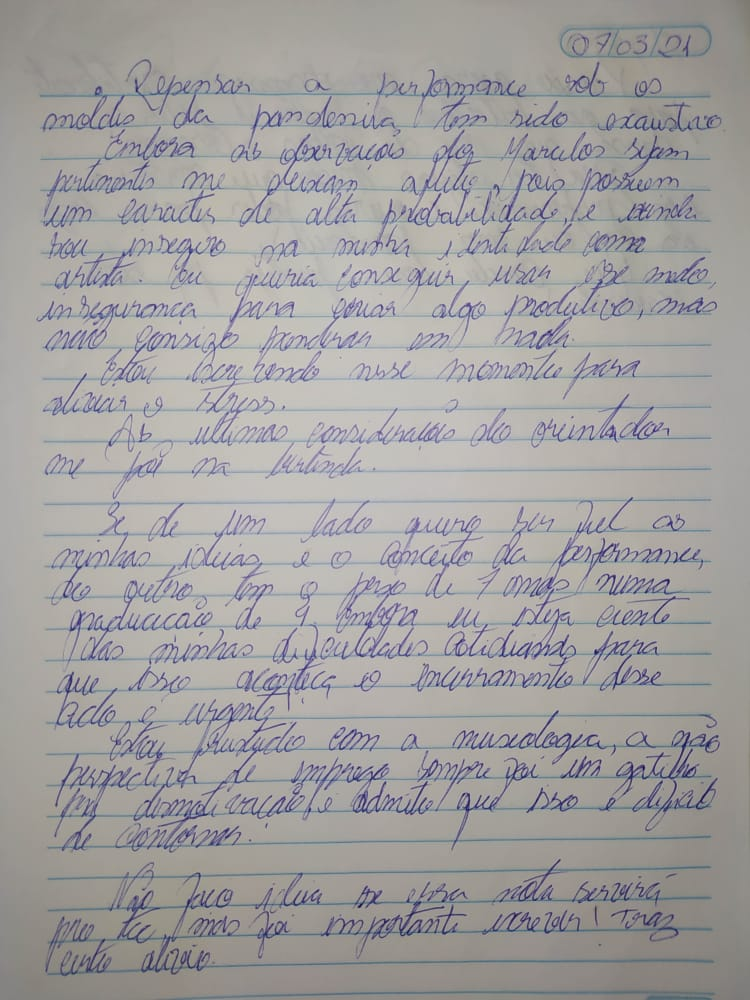 07/03/21
. Repensar a performance sob os
moldes da pandemia tem sido exaustivo.
Embora as observações dos Marcelos sejam
pertinentes me deixam aflito, pois possuem
um caracter de alta probabilidade, e ainda
sou inseguro na minha identidade como
artista. Eu queria conseguir usar esse medo,
insegurança para gerar algo produtivo, mas
não consigo ponderar em nada.
Estou escrevendo nesse momento para
aliviar o stress.
As ultimas considerações do orientador
me põe na berlinda.
Se, de um lado quero ser fiel as
minhas ideias e o conceito da performance,
do outro, tem o peso de 7 anos numa
graduação de 4. Embora eu esteja ciente
das minhas dificuldades cotidianas para
que isso aconteça, o encerramento desse
ciclo é urgente!
Estou frustrado com a museologia, a não
perspectiva de emprego sempre foi um gatilho
pra desmotivação, e admito que isso é dificil
de contornar.
Não faço ideia se essa nota servirá
pro tcc, mas foi importante escrever! Traz
certo alívio.